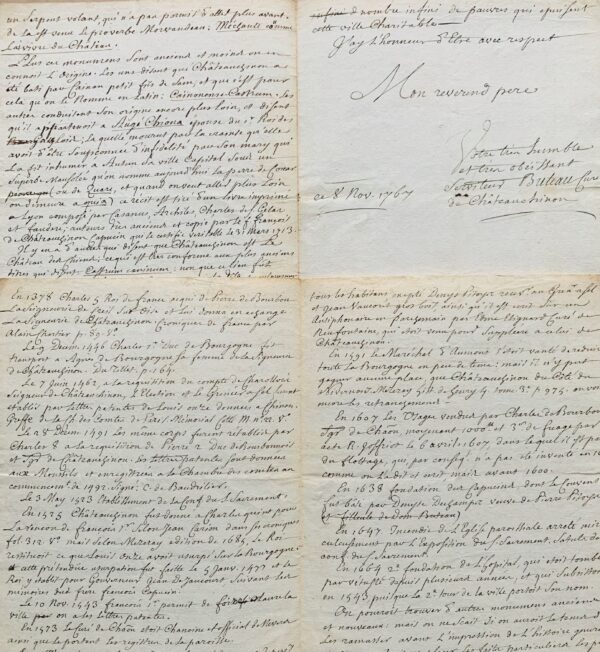 un Serpent volant, qui n'a pas permit d'allés plus avant.
de la est venu le proverbe Morvandeau: Mechante comme
la vivre du Chateau.
Plus ces monumens sont anciens et moins on en
connoit l'origine. Les uns disent que Chateauchinon a
été bati par Cainon petit fils de Sem, et que c'est pour
cela qu'on le nomme en Latin: Cainonense Castrum. Les
autres conduisent son origine encore plus loin, et disent
qu'il appartenoit a Auge Chiona epouse du 1er Roi des
la quelle mourut par la crainte qu'elle
avoit d'être soupçonnée d'infidelité par son mary qui
la fit inhumer a Autun sa ville Capital Sous un
Superbe Mausolée qu'on nomme aujourd'hui la pierre de
ou de et quand on veut aller plus Loin
on demeure a quia) ce recit est tiré d'un livre imprimé
a Lyon composé par Casanus, Archilas, Charles de
et Laudere, auteurs tres anciens et copié par le P. françois
de Chateauchinon Capucin qui le certifie veritable le 31 Mars 1713.
Il y en a d'autres qui disent que Chateauchinon est Le
Chateau des Chiens; ce qui est tres conforme aux plus anciens
titres qui disent Castrum caninum: non que ce lieu fut
nombre infini de pauvres qui epuisent
cette ville Charitable
J'ay L'honneur d'être avec respect
Mon reverend pere
Votre tres humble
et tres obeissant
Serviteur Buteau Curé
de Chateauchinon
ce 8 Nov. 1767
En 1378 Charles 5 Roi de france acquit de Pierre de Bourbon
La Seigneurie de Creil Sur Oise et lui donna en echange
La Seigneurie de Chateauchinon Cronique de france par
Alain Chartier p. 82. 84
Le 9 Decem. 1446 Charles 1er Duc de Bourgogne fit
transport a Agnes de Bourgogne sa femme de la Signeurie
de Chateauchinon. Du Tillet. p. 164.
Le 7 Juin 1462, a la requisition du compte de Charollois
Seigneur de Chateauchinon, L'Election et le Grenier a sel furent
etablis par Lettre patentes de Louis onze données a Chinon.
Greffe de la Ch. des Comtes de Paris Memorial cotté M. n° 22.
Le 28 Fevrier 1491 les meme corps furent retablis par
Charles 8 a la requisition de Pierre 2 Duc de Bourbonnois
et Sgr de Chateauchinon. Les lettres patentes sont données
aux Montils et enregistrées a la Chambre des comtes au
commencement de 1492. Signé: C. de Baudrilier
Le 3 May 1523 Etablissement de la Conf. du S. Sacrement.
En 1525 Chateauchinon fut donné a Charles quint pour
La rencon de francois 1er Selon Jean Carion dans ses croniques
fol. 312. v° mais selon Mezeray edition de 1685, Le Roi
restituoit ce que Louis Onze avoit usurpé sur la Bourgogne
cette pretendue usurpation fut faitte le 5 Janv. 1477 et le
Roi y etablit pour Gouverneur Jean Dejaucourt Suivant les
memoires dud. frere francois Capucin.
Le 10 Nov. 1543 francois 1er permit de clorre la
ville on a les lettres patentes.
En 1573 Le Curé de Chaon étoit Chanoine et official de Nevers
ainsi que le portent les registres de la paroisse.
tous les habitans excepté Denys Pitoys receveur au Grenier a sel
et Jean Vaucoret gros boisier ainsi qu'il est ecrit sur un
Antiphonaire en parchemin par Dom Leonard Curé de
qui etoit venu pour Suppleer a celui de
Chateauchinon.
En 1591 le Marechal d'Aumont s'etoit vanté de reduire
tout La Bourgogne en peu de tems: mais il n'y put
gagner aucune place que Chateauchinon du Côté du
Nivernois. Mezeray 3. tome 3. p. 975. on voit
encore les retranchemens.
En 1607 Les Usage vendus par Charles de Bourbon
Sgr de Chaon, moyennant 1000tt et 3° de fouage par
acte R. Joffriot le 6 avril 1607 dans lequel il est parlé
du flottage, qui par consequent n'a pas été inventé en 16
comme on l'a dit et ecrit mais avant 1600.
En 1638 fondation des Capucins, dont le couvent
fut bati par Denyse Duchampt veuve de Pierre Pitoys

En 1647 Incendie de l'Eglise paroissiale arreté mira
culeusement par l'Exposition du S. Sacrement. Statuts de la
conf. du S. Sacrement.
En 1664 2e fondation de l'hopital, qui etoit tombé
par vetusté depuis plusieurs années, et qui subsistoit
en 1543 puisque la 2e tour de la ville portoit son nom.
On pouroit trouver d'autres monumens anciens
et nouveaux: mais on ne scait si on auroit le tems de
les ramasser avant l'impression de l'histoire generale